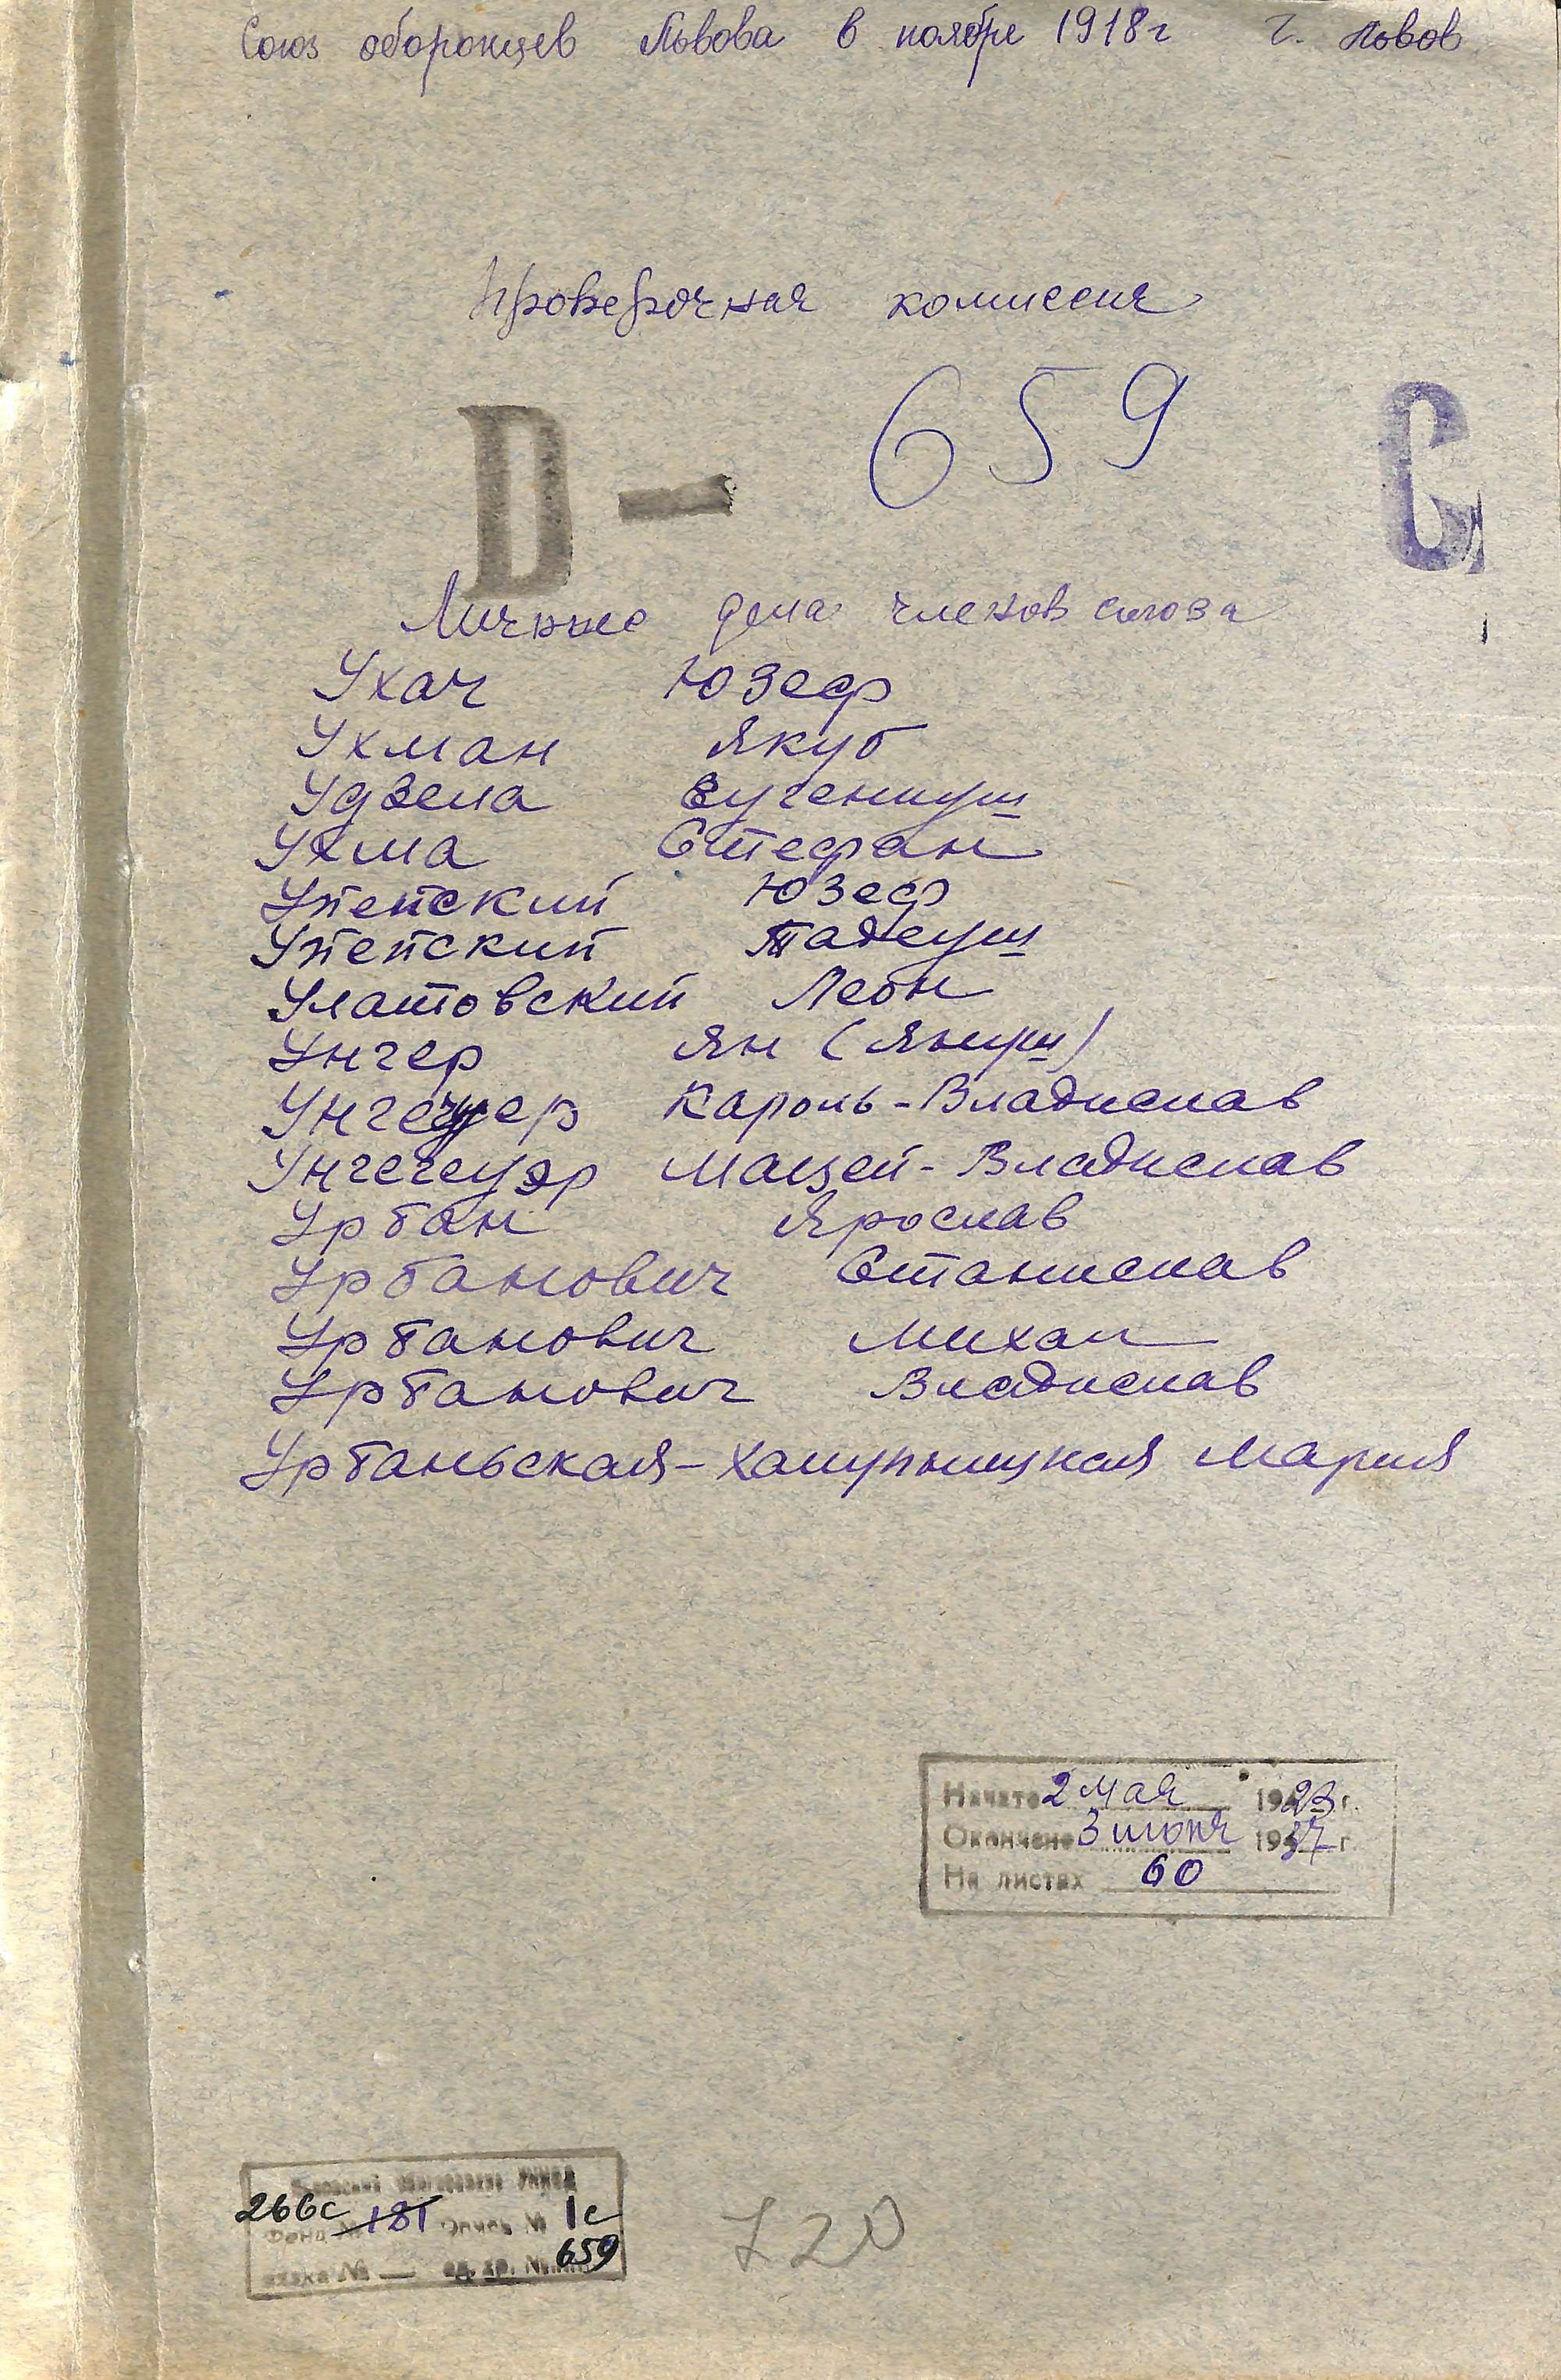 Союз оборонцев Львова в ноябре 1918г г. Львов
Проверочная комиссия
D — 659 С
Личные дела членов союза
Ухач Юзеф
Ухман Якуб
Удзела Еугениуш
Ухма Стефан
Уейский Юзеф
Уейский Тадеуш
Улатовский Леон
Унгер Ян (Януш)
Кароль-Владислав
Унгегеуэр Мацей-Владислав
Урбан Ярослав
Урбанович Станислав
Урбанович Михал
Урбанович Владислав
Урбаньская-Хашупницкая Мария
Начато 2 мая 1923 г.
Окончено 3 июня 1937 г.
На листах 60
266с
Фонд № 181 Опись № 1с
вязка № — ед. хр. № 659
720